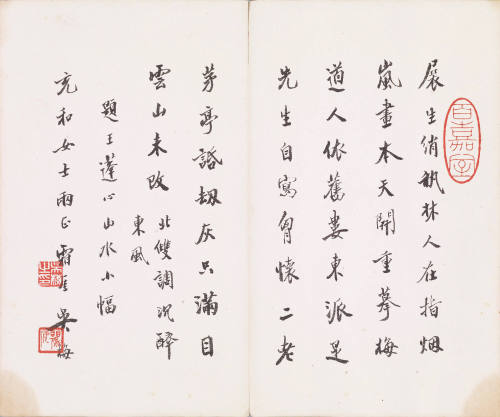 百嘉室
展生綃林人在指烟
嵐畫本天開重摹梅
道人依舊婁東派是
先生自寫胷懷二老
茅亭話劫灰只滿目
雲山未改 北雙調沉醉
東風
題王蓬心山水小幅
充和女士正 霜厓吳梅